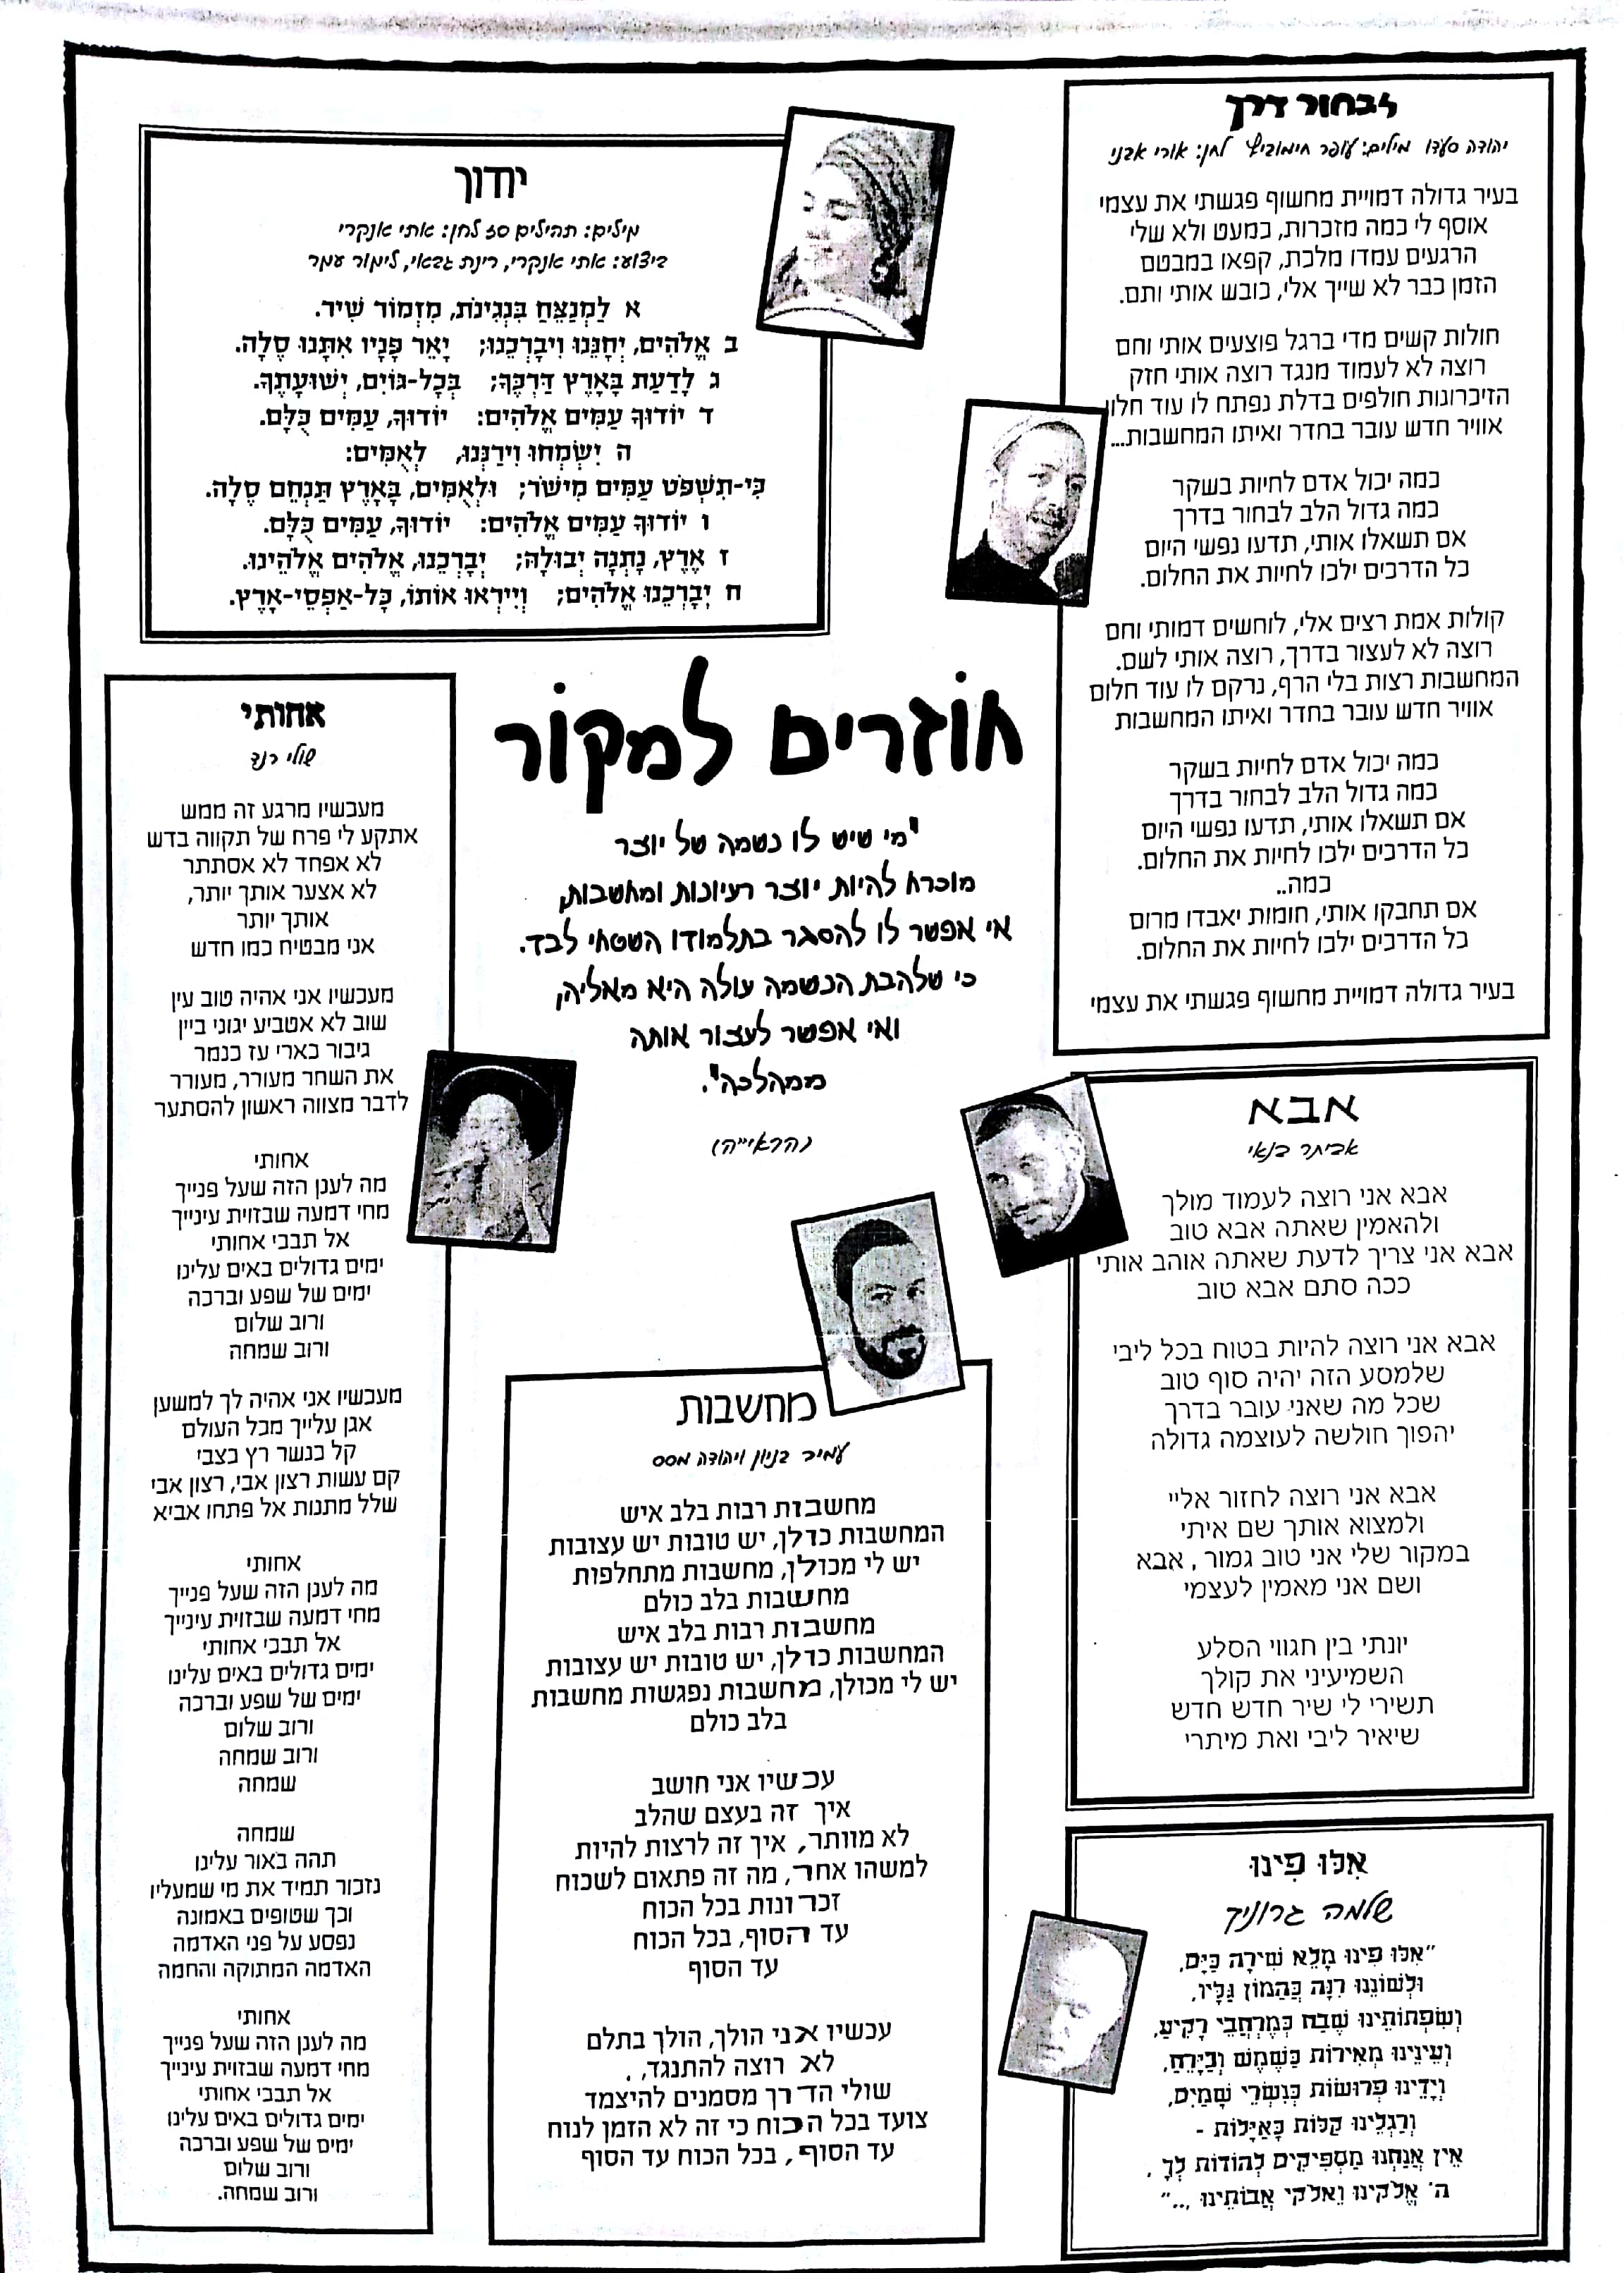 לבחור דרך
יהודה סעדו מילים: עופר חימוביץ לחן: אורי אבני
בעיר גדולה דמויית מחשוף פגשתי את עצמי
אוסף לי כמה מזכרות, כמעט ולא שלי
הרגעים עמדו מלכת, קפאו במבטם
הזמן כבר לא שייך אלי, כובש אותי ותם.
חולות קשים מדי ברגל פוצעים אותי וחם
רוצה לא לעמוד מנגד רוצה אותי חזק
הזיכרונות חולפים בדלת נפתח לו עוד חלון
אוויר חדש עובר בחדר ואיתו המחשבות...
כמה יכול אדם לחיות בשקר
כמה גדול הלב לבחור בדרך
אם תשאלו אותי, תדעו נפשי היום
כל הדרכים ילכו לחיות את החלום.
קולות אמת רצים אלי, לוחשים דמותי וחם
רוצה לא לעצור בדרך, רוצה אותי לשם.
המחשבות רצות בלי הרף, נרקם לו עוד חלום
אוויר חדש עובר בחדר ואיתו המחשבות
כמה יכול אדם לחיות בשקר
כמה גדול הלב לבחור בדרך
אם תשאלו אותי, תדעו נפשי היום
כל הדרכים ילכו לחיות את החלום.
כמה..
אם תחבקו אותי, חומות יאבדו מרום
כל הדרכים ילכו לחיות את החלום.
בעיר גדולה דמויית מחשוף פגשתי את עצמי
יודוך
מילים: תהילים סז לחן: אתי אנקרי
ביצוע: אתי אנקרי, רינת גבאי, לימור עמר
א לַמְנַצֵּחַ בִּנְגִינֹת, מִזְמוֹר שִׁיר.
ב אֱלֹהִים, יְחָנֵּנוּ וִיבָרְכֵנוּ; יָאֵר פָּנָיו אִתָּנוּ סֶלָה.
ג לָדַעַת בָּאָרֶץ דַּרְכֶּךָ; בְּכָל-גּוֹיִם, יְשׁוּעָתֶךָ.
ד יוֹדוּךָ עַמִּים אֱלֹהִים: יוֹדוּךָ, עַמִּים כֻּלָּם.
ה יִשְׂמְחוּ וִירַנְּנוּ, לְאֻמִּים:
כִּי-תִשְׁפֹּט עַמִּים מִישֹׁר; וּלְאֻמִּים, בָּאָרֶץ תַּנְחֵם סֶלָה.
ו יוֹדוּךָ עַמִּים אֱלֹהִים: יוֹדוּךָ, עַמִּים כֻּלָּם.
ז אֶרֶץ, נָתְנָה יְבוּלָהּ; יְבָרְכֵנוּ, אֱלֹהִים אֱלֹהֵינוּ.
ח יְבָרְכֵנוּ אֱלֹהִים; וְיִירְאוּ אוֹתוֹ, כָּל-אַפְסֵי-אָרֶץ.
חוזרים למקור
"מי שיש לו נשמה של יוצר
מוכרח להיות יוצר רעיונות ומחשבות,
אי אפשר לו להסגר בתלמודו השטחי לבד.
כי שלהבת הנשמה עולה היא מאליה,
ואי אפשר לעצור אותה
ממהלכה".
(הראי"ה)
אחותי
שולי רנד
מעכשיו מרגע זה ממש
אתקע לי פרח של תקווה בדש
לא אפחד לא אסתתר
לא אצער אותך יותר,
אותך יותר
אני מבטיח כמו חדש
מעכשיו אני אהיה טוב עין
שוב לא אטביע יגוני ביין
גיבור כארי עז כנמר
את השחר מעורר, מעורר
לדבר מצווה ראשון להסתער
אחותי
מה לענן הזה שעל פנייך
מחי דמעה שבזוית עינייך
אל תבכי אחותי
ימים גדולים באים עלינו
ימים של שפע וברכה
ורוב שלום
ורוב שמחה
מעכשיו אני אהיה לך למשען
אגן עלייך מכל העולם
קל כנשר רץ כצבי
קם עשות רצון אבי, רצון אבי
שלל מתנות אל פתחו אביא
אחותי
מה לענן הזה שעל פנייך
מחי דמעה שבזוית עינייך
אל תבכי אחותי
ימים גדולים באים עלינו
ימים של שפע וברכה
ורוב שלום
ורוב שמחה
שמחה
שמחה
תהה באור עלינו
נזכור תמיד את מי שמעליו
וכך שטופים באמונה
נפסע על פני האדמה
האדמה המתוקה והחמה
אחותי
מה לענן הזה שעל פנייך
מחי דמעה שבזוית עינייך
אל תבכי אחותי
ימים גדולים באים עלינו
ימים של שפע וברכה
ורוב שלום
ורוב שמחה.
מחשבות
עמיר בניון ויהודה מסס
מחשבות רבות בלב איש
המחשבות כדלן, יש טובות יש עצובות
יש לי מכולן, מחשבות מתחלפות
מחשבות בלב כולם
מחשבות רבות בלב איש
המחשבות כדלן, יש טובות יש עצובות
יש לי מכולן, מחשבות נפגשות מחשבות
בלב כולם
עכשיו אני חושב
איך זה בעצם שהלב
לא מוותר, איך זה לרצות להיות
למשהו אחר, מה זה פתאום לשכוח
זכרונות בכל הכוח
עד הסוף, בכל הכוח
עד הסוף
עכשיו אני הולך, הולך בתלם
לא רוצה להתנגד, .
שולי הדרך מסמנים להיצמד
צועד בכל הכוח כי זה לא הזמן לנוח
עד הסוף, בכל הכוח עד הסוף
אבא
אביתר בנאי
אבא אני רוצה לעמוד מולך
ולהאמין שאתה אבא טוב
אבא אני צריך לדעת שאתה אוהב אותי
ככה סתם אבא טוב
אבא אני רוצה להיות בטוח בכל ליבי
שלמסע הזה יהיה סוף טוב
שכל מה שאני עובר בדרך
יהפוך חולשה לעוצמה גדולה
אבא אני רוצה לחזור אליי
ולמצוא אותך שם איתי
במקור שלי אני טוב גמור, אבא
ושם אני מאמין לעצמי
יונתי בין חגווי הסלע
השמיעיני את קולך
תשירי לי שיר חדש חדש
שיאיר ליבי ואת מיתרי
אִלּוּ פִינוּ
שלמה גרוניך
"אִלּוּ פִינוּ מָלֵא שִׁירָה כַּיָּם,
וּלְשׁוֹנֵנוּ רִנָּה כַּהֲמוֹן גַּלָּיו,
וְשִׂפְתוֹתֵינוּ שֶׁבַח כְּמֶרְחֲבֵי רָקִיעַ,
וְעֵינֵינוּ מְאִירוֹת כַּשֶּׁמֶשׁ וְכַיָּרֵחַ,
וְיָדֵינוּ פְרוּשׂוֹת כְּנִשְׁרֵי שָׁמַיִם,
וְרַגְלֵינוּ קַלּוֹת כָּאַיָּלוֹת -
אֵין אֲנַחְנוּ מַסְפִּיקִים לְהוֹדוֹת לְךָ,
ה' אֱלֹקֵינוּ וֵאלֹקֵי אֲבוֹתֵינוּ ..."